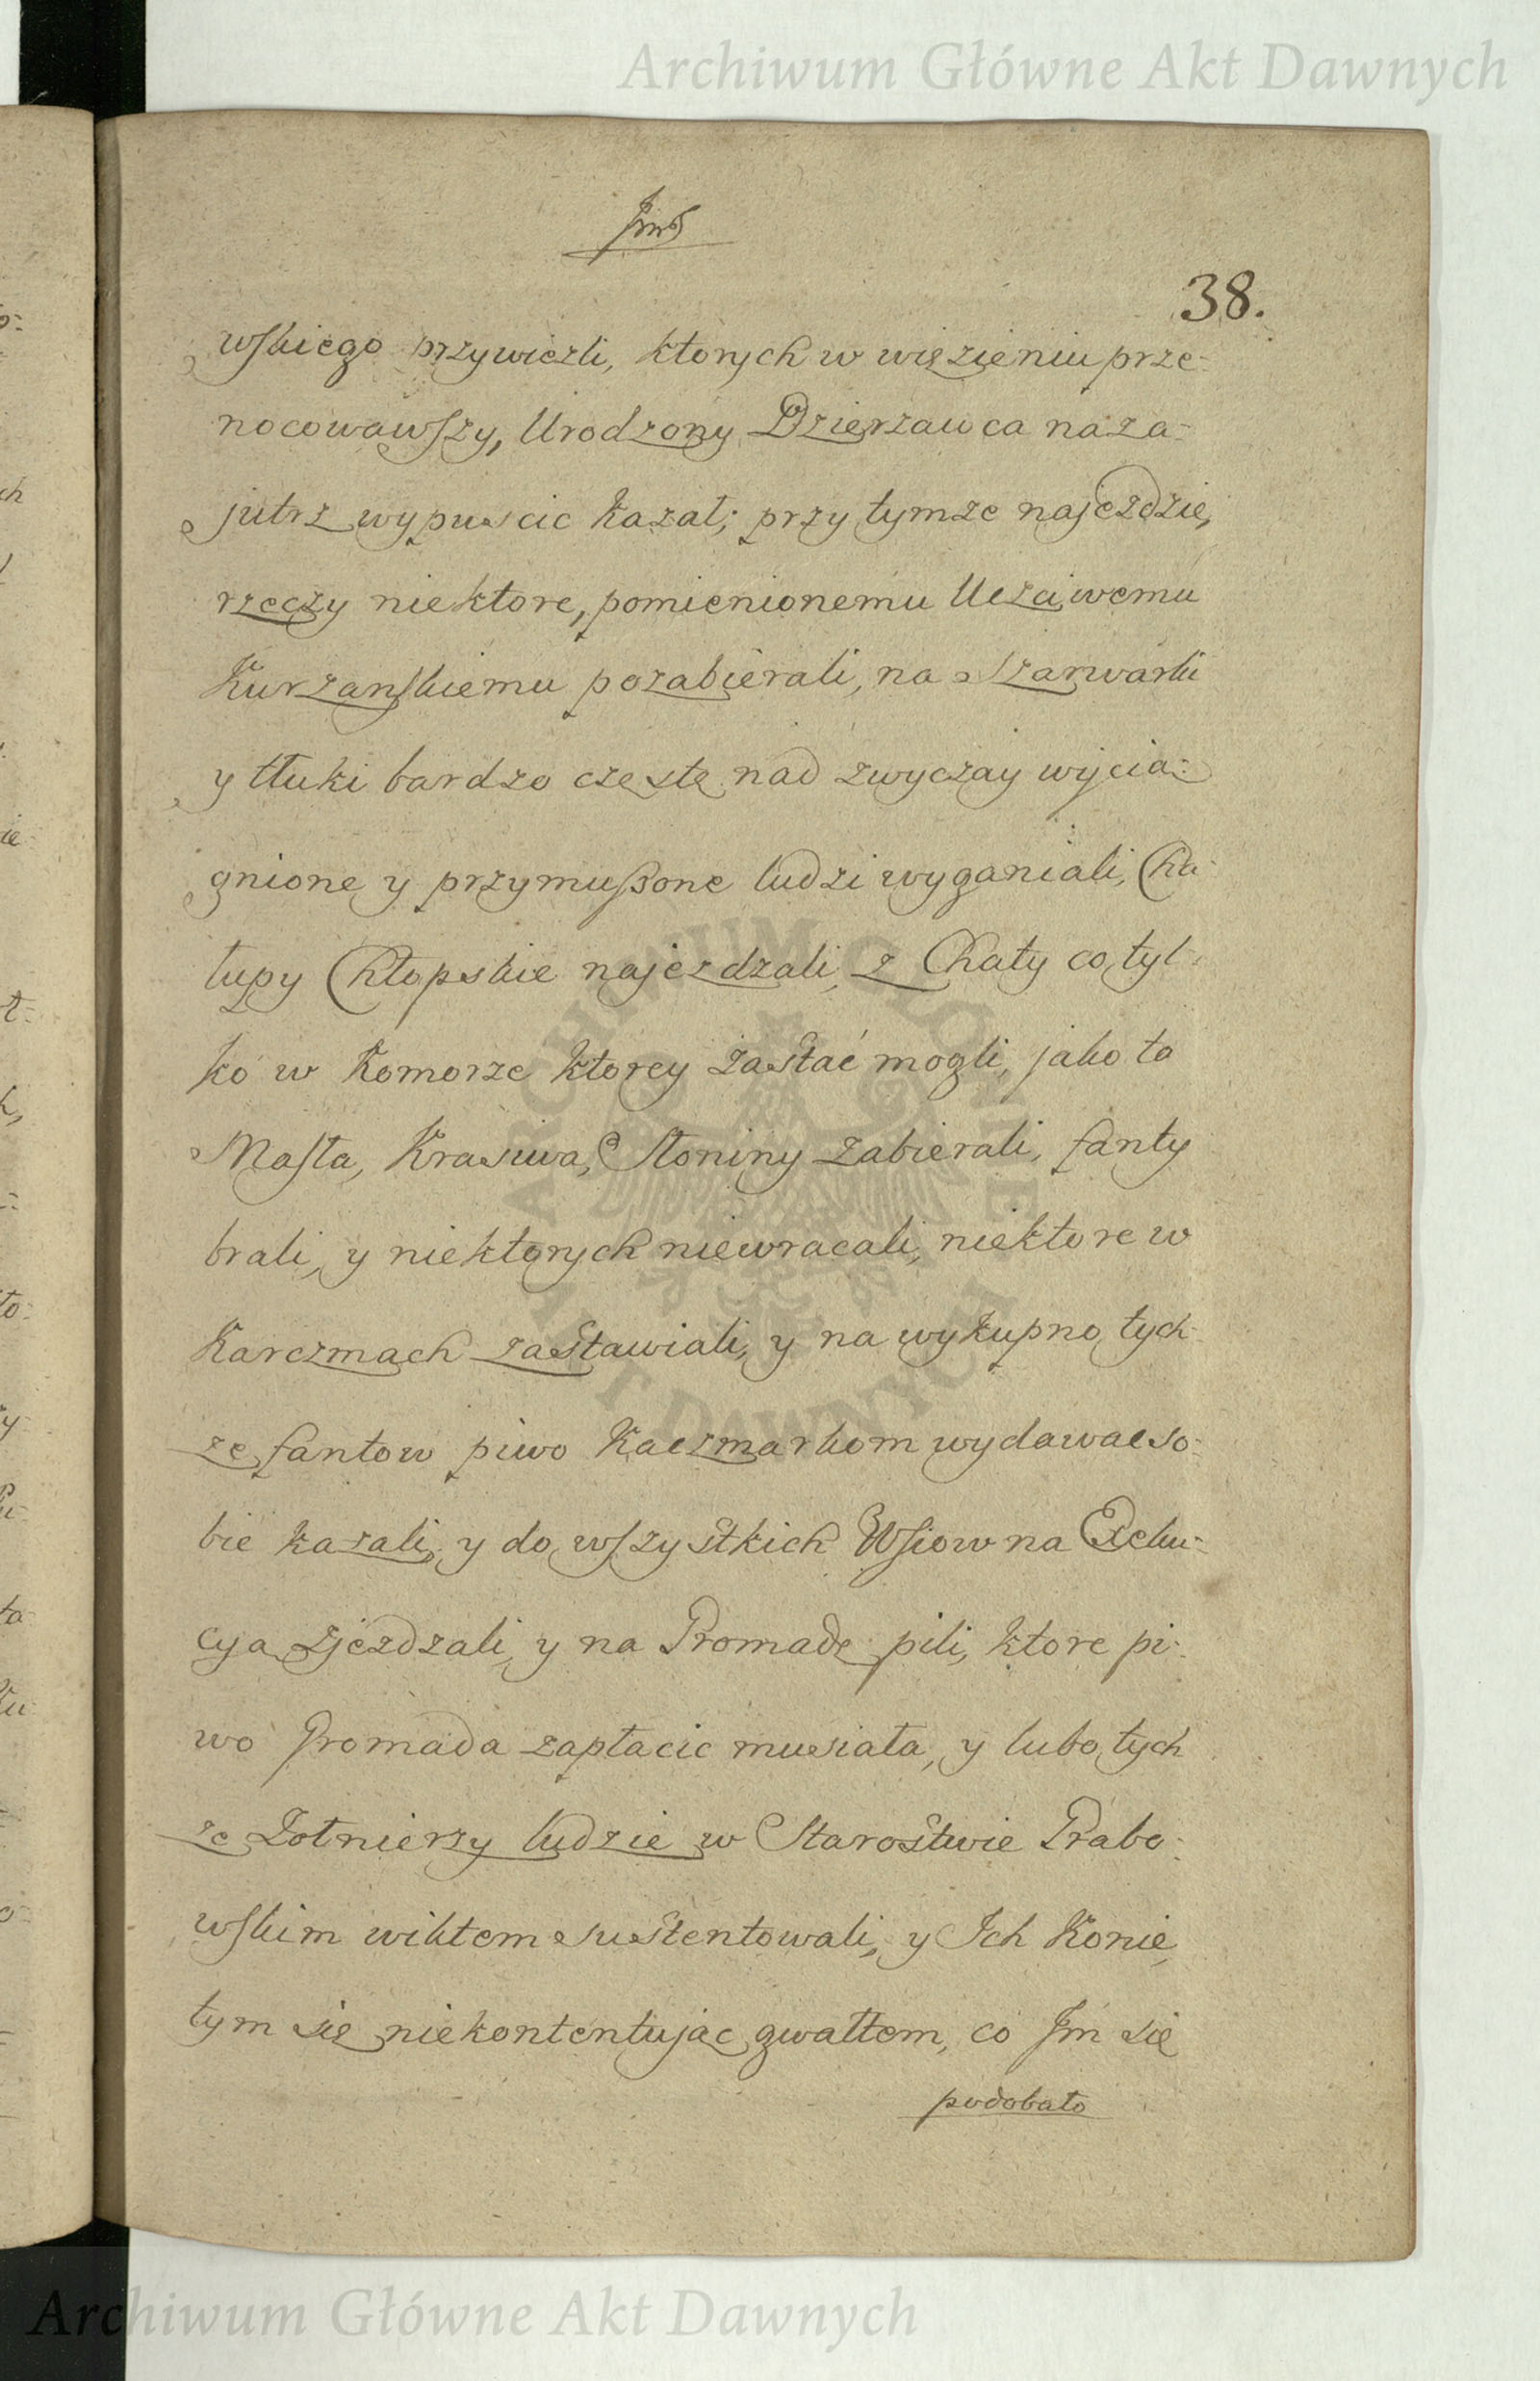 Archiwum Główne Akt Dawnych
38.
wskiego przywiezli, ktorych w więzieniu prze-
nocowawszy, Urodzony Dzierzawca naza-
jutrz wypuscic kazał; przy tymze najezdzie,
rzeczy niektore, pomienionemu Uczciwemu
Kurzanskiemu pozabierali, na Szarwarki
y tłuki bardzo częste nad zwyczay wycia-
gnione y przymuszone ludzi wyganiali, Cha-
łupy Chłopskie najezdzali, z Chaty co tyl-
ko w Komorze ktorey zastać mogli, jako to
Masła, Krasiwa, Słoniny zabierali, fanty
brali, y niektorych niewracali, niektore w
Karczmach zastawiali, y na wykupno tych-
ze fantow piwo Kaczmarkom wydawac so-
bie kazali, y do wszystkich Wsiow na Exeku-
cya zjezdzali, y na Gromadę pili, ktore pi-
wo Gromada zapłacic musiała, y lubo tych
ze Zołnierzy ludzie w Starostwie Grabo-
wskim wiktem sustentowali, y Ich Konie,
tym się niekontentując gwałtem, co Jm się
podobało
ARCHIWUM GŁÓWNE AKT DAWNYCH
Archiwum Główne Akt Dawnych